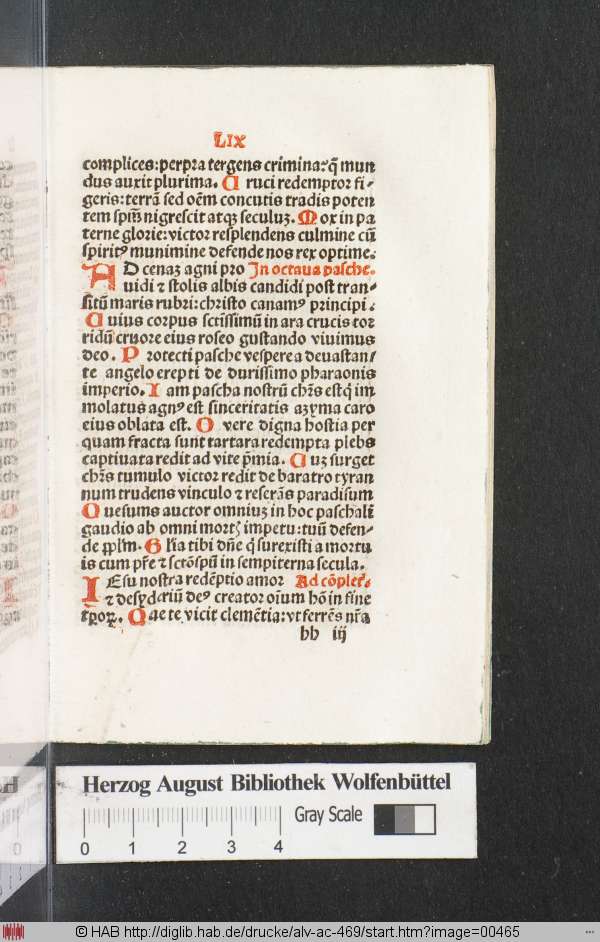 LIX
complices:perpra tergens crimina:q̄ mun
dus auxit plurima. C ruci redemptor fi-
geris:terrā sed oēm concutis tradis poten
tem spm̄ nigrescit atqꝫ seculuꝫ. Mox in pa
terne glorie:victor resplendens culmine cū
spiritꝰ munimine defende nos rex optime.
AD cenaꝫ agni pro In octaua pasche.
uidi ⁊ stolis albis candidi post tran-
sitū maris rubri:christo canamꝰ principi.
Cuius corpus sctissimū in ara crucis tor
ridū cruore eius roseo gustando viuimus
deo. P rotecti pasche vespere a deuastan/
te angelo erepti de durissimo pharaonis
imperio. I am pascha nostrū chrs̄ est q̄ im
molatus agnꝰ est sinceritatis aꝫyma caro
eius oblata est. O vere digna hostia per
quam fracta sunt tartara redempta plebs
captiuata redit ad vite p̄mia. Cuꝫ surget
chrs̄ tumulo victor redit de baratro tyran
num trudens vinculo ⁊ reserās paradisum
Quesums auctor omniuꝫ in hoc paschali
gaudio ab omni mortꝭ impetu:tuū defen-
de pplm̄. Glīa tibi dn̄e q̄ surexisti a mortu
is cum pr̄e ⁊ sctōspū in sempiterna secula.
IEsu nostra redēptio amor Ad cōpletꝭ.
⁊ desyderiū deꝰ creator oīum hō in fine
tp̄oꝝ. Quae te vicit clemētia:vt ferrēs nr̄a
bb iij
Herzog August Bibliothek Wolfenbüttel
Gray Scale
0 1 2 3 4
© HAB http://diglib.hab.de/drucke/alv-ac-469/start.htm?image=00465